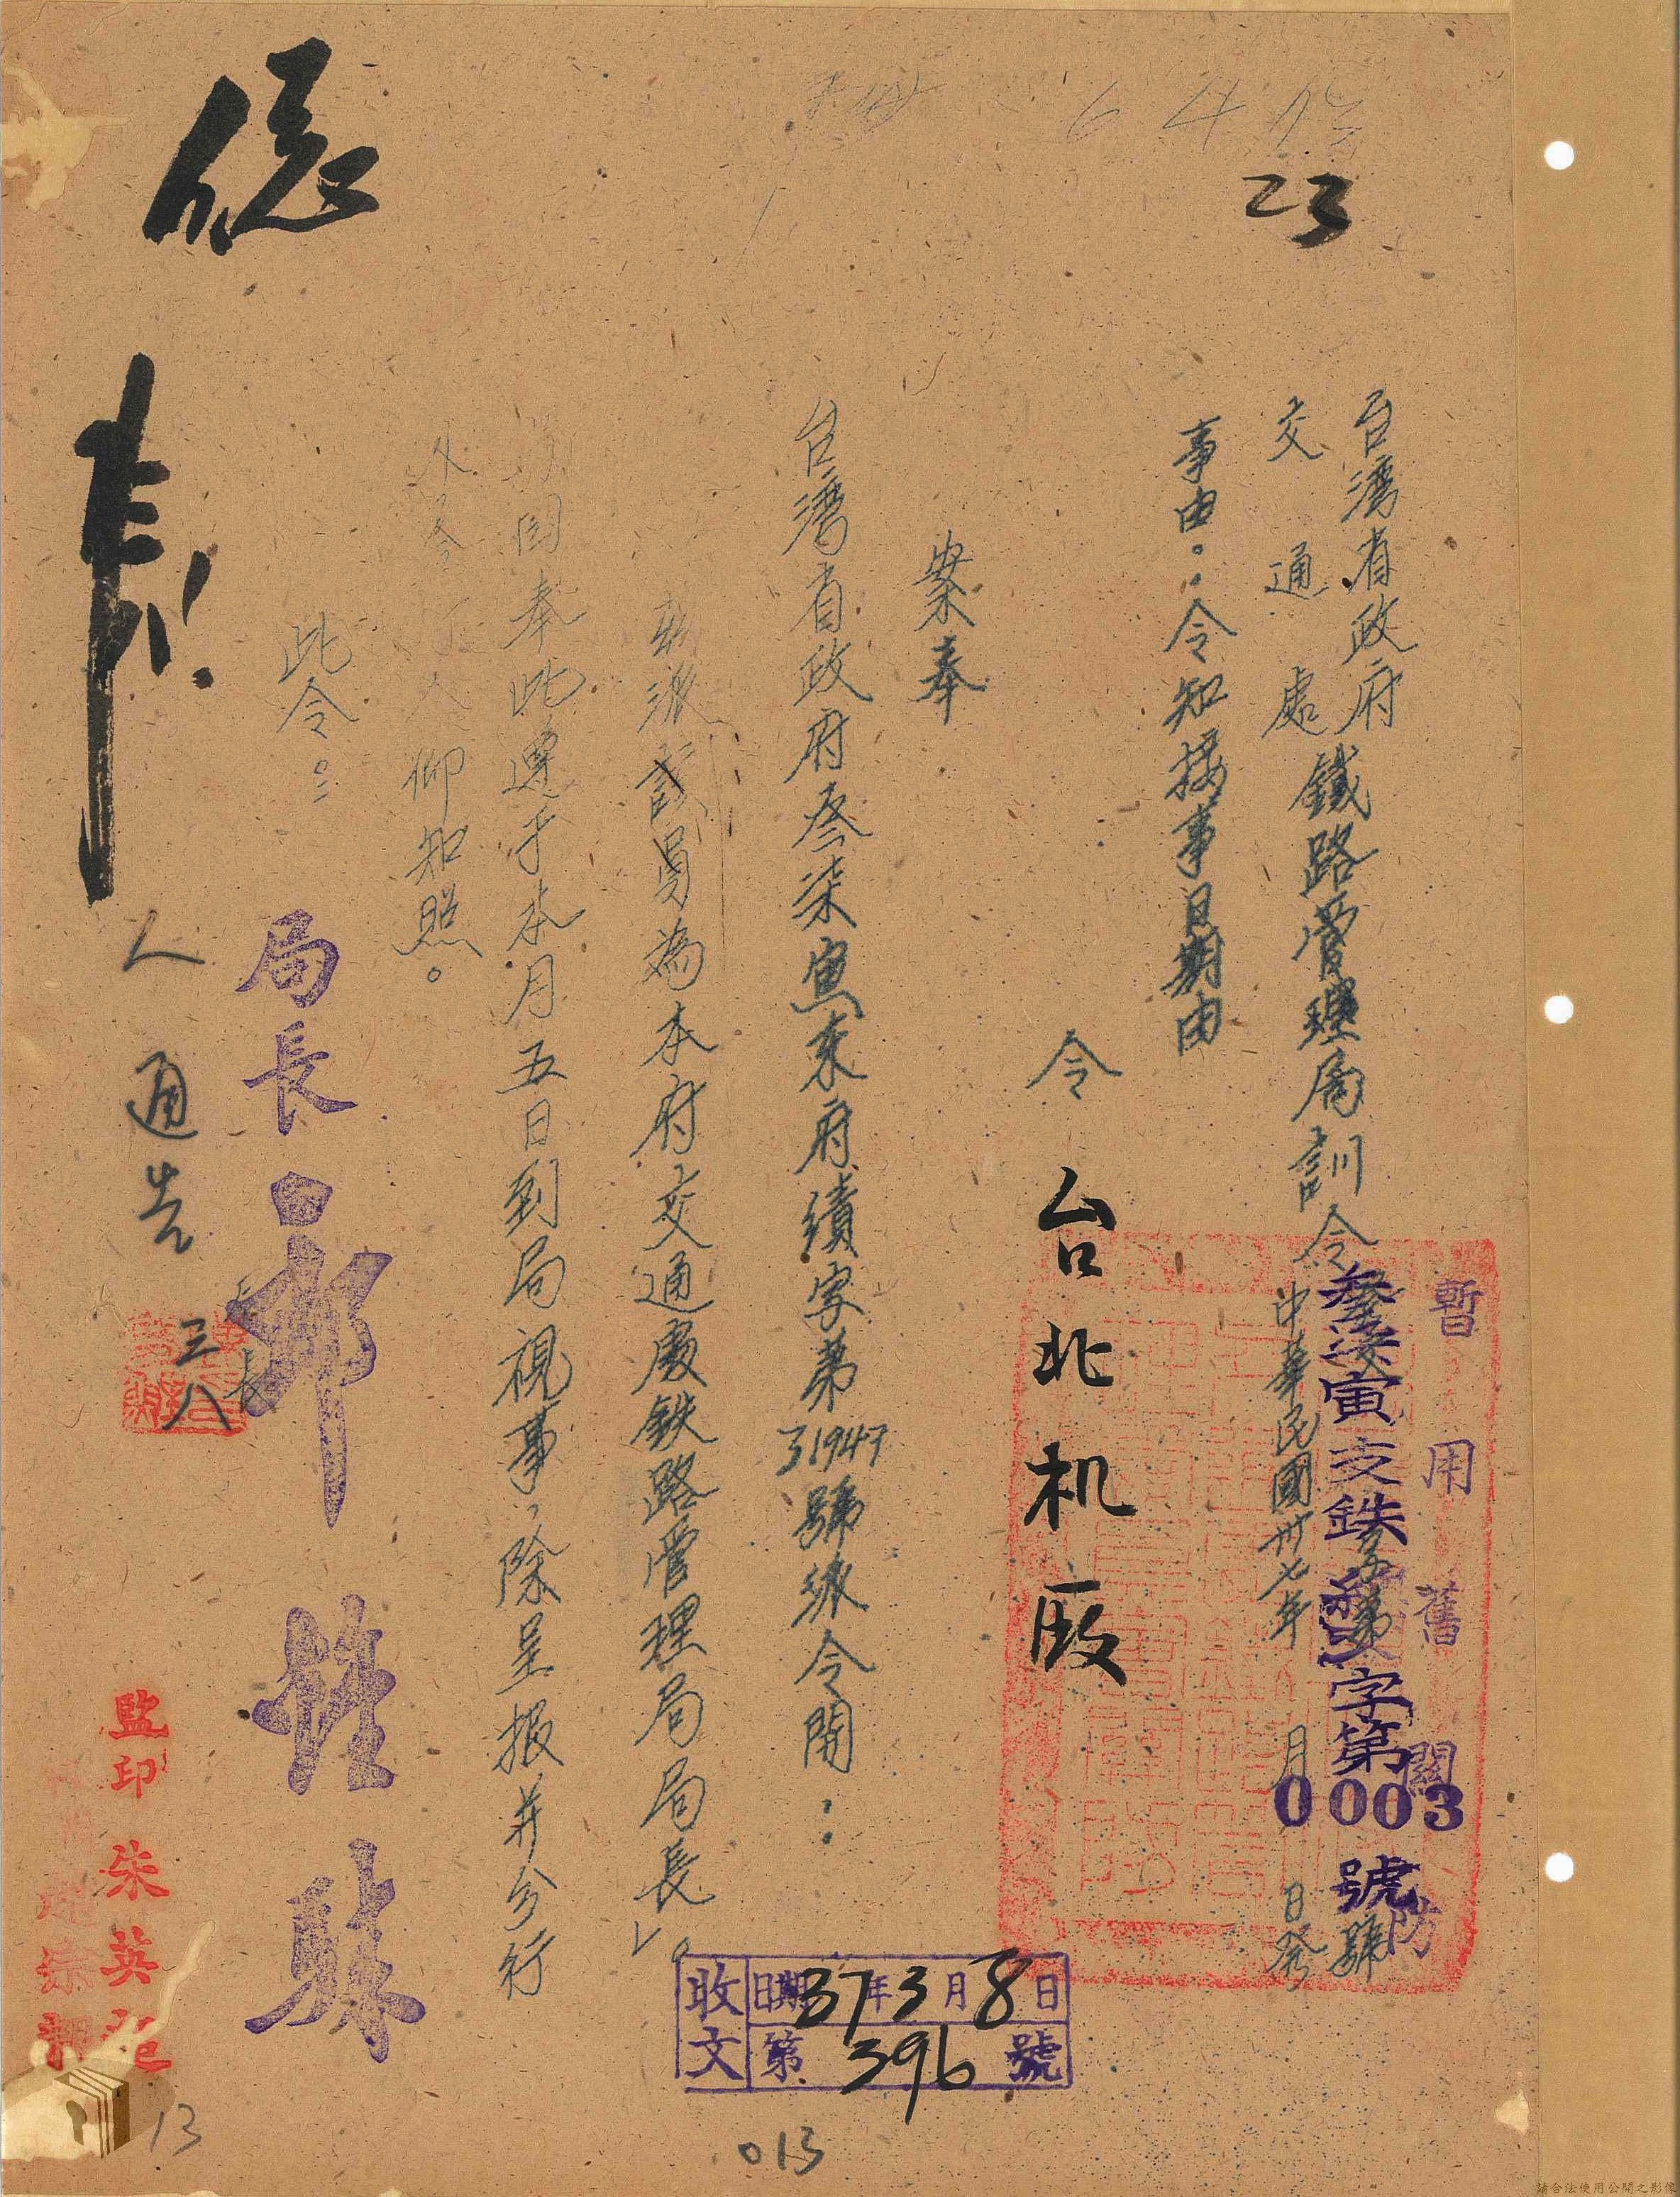 23
暫用舊關防
台灣省政府
交通處
鐵路管理局訓令
叁柒寅 交鉄 字第0003號
字第 號
中華民國卅七年 月 日發
事由：令知接事日期由
令 台北机廠
案奉
台灣省政府叁柒寅東府績字第31947號派令開：
茲派該員為本府交通處鉄路管理局局長」。
因奉此遵于本月五日到局視事，除呈报并分行
仰知照。
此令。
局長 郎鍾騋
人
通告
三八
監印 朱英
收文 日期37年3月8日 第396號
013
13
請合法使用公開之影像